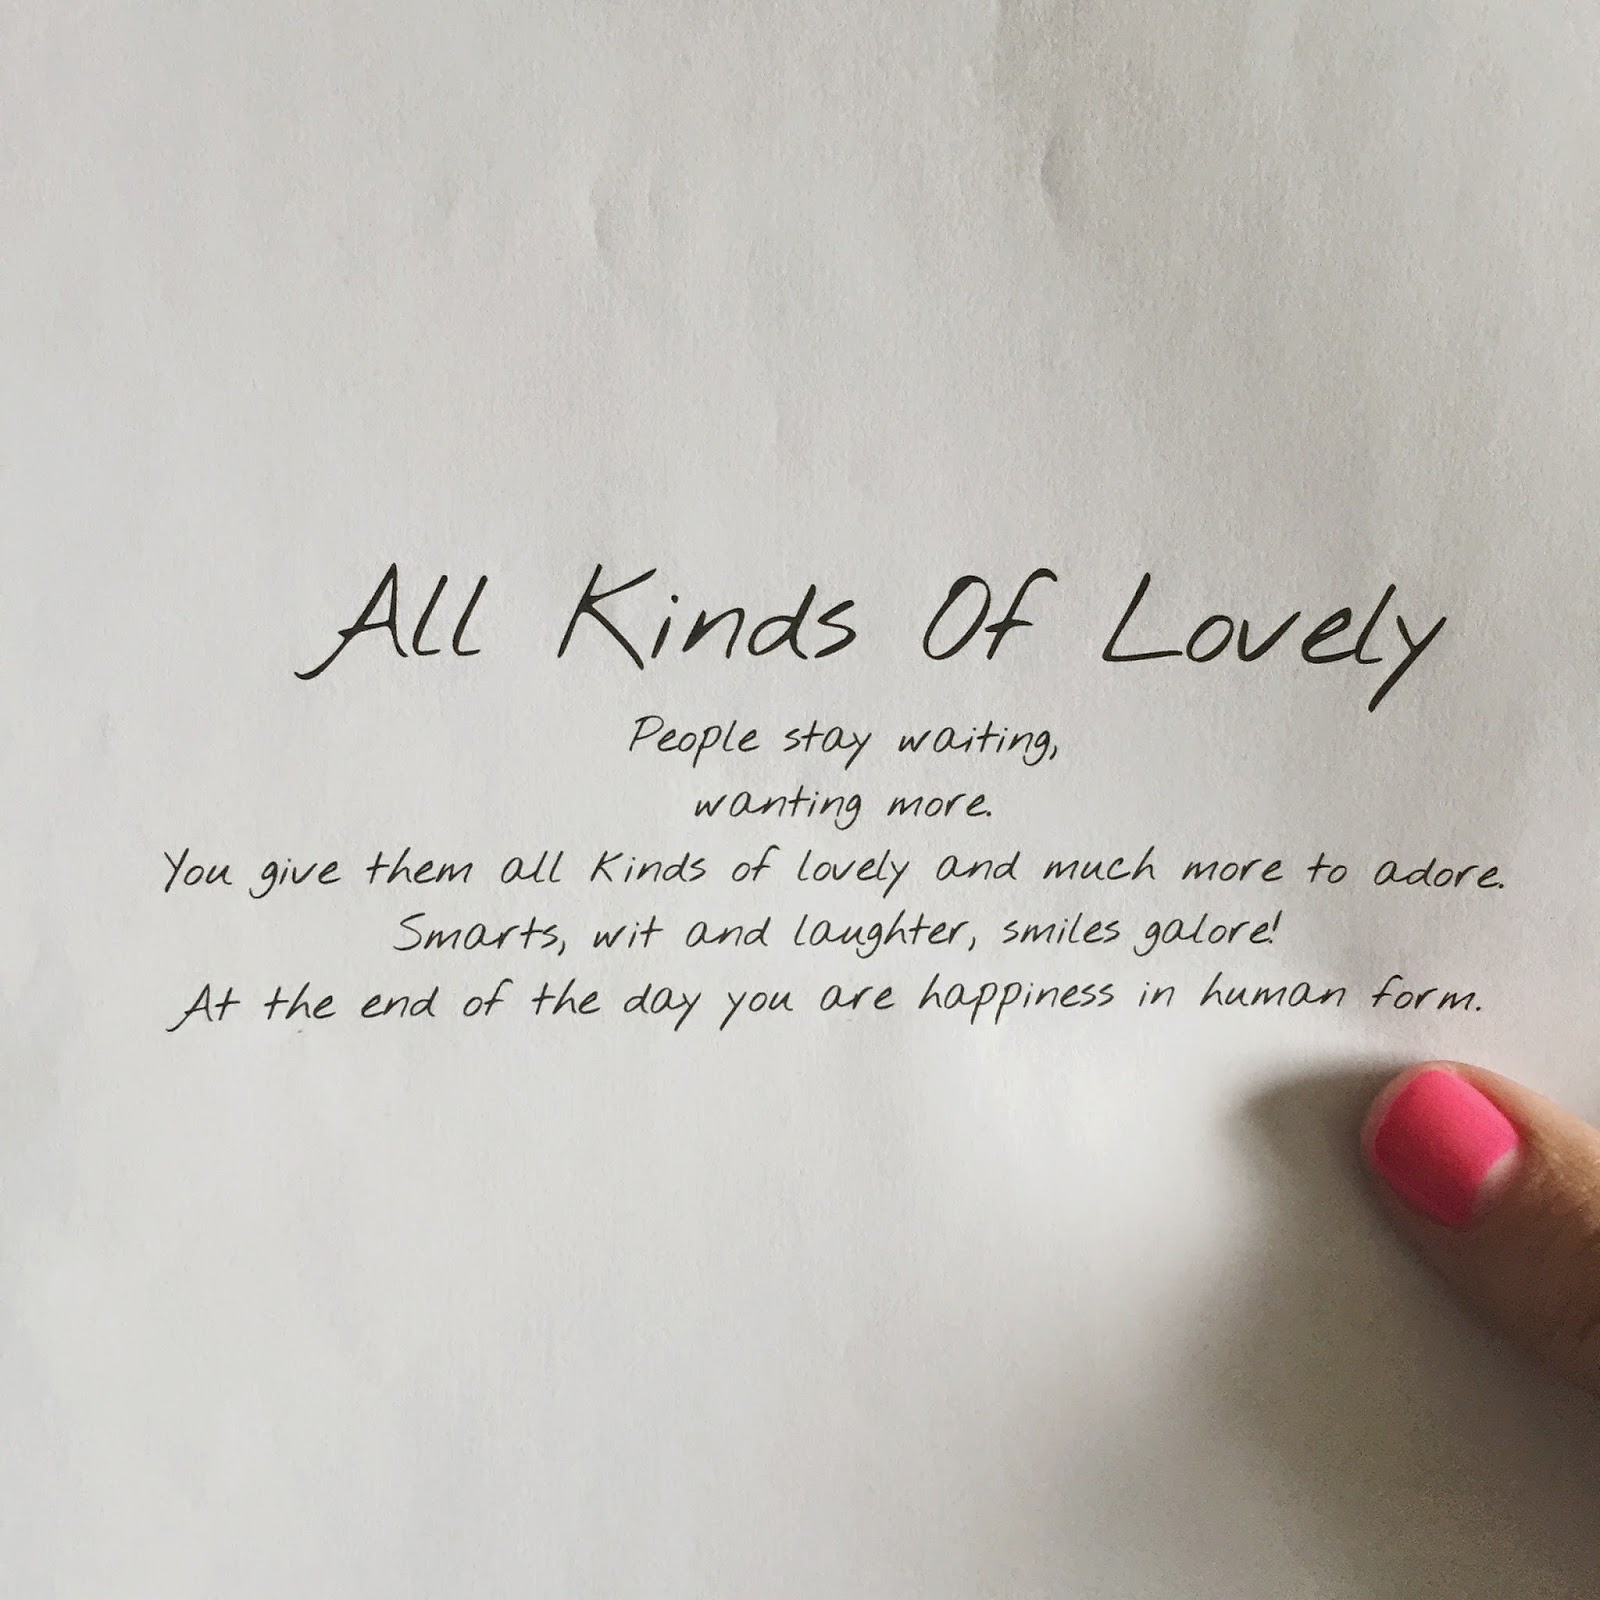 All Kinds Of Lovely
People stay waiting,
wanting more.
You give them all kinds of lovely and much more to adore.
Smarts, wit and laughter, smiles galore!
At the end of the day you are happiness in human form.